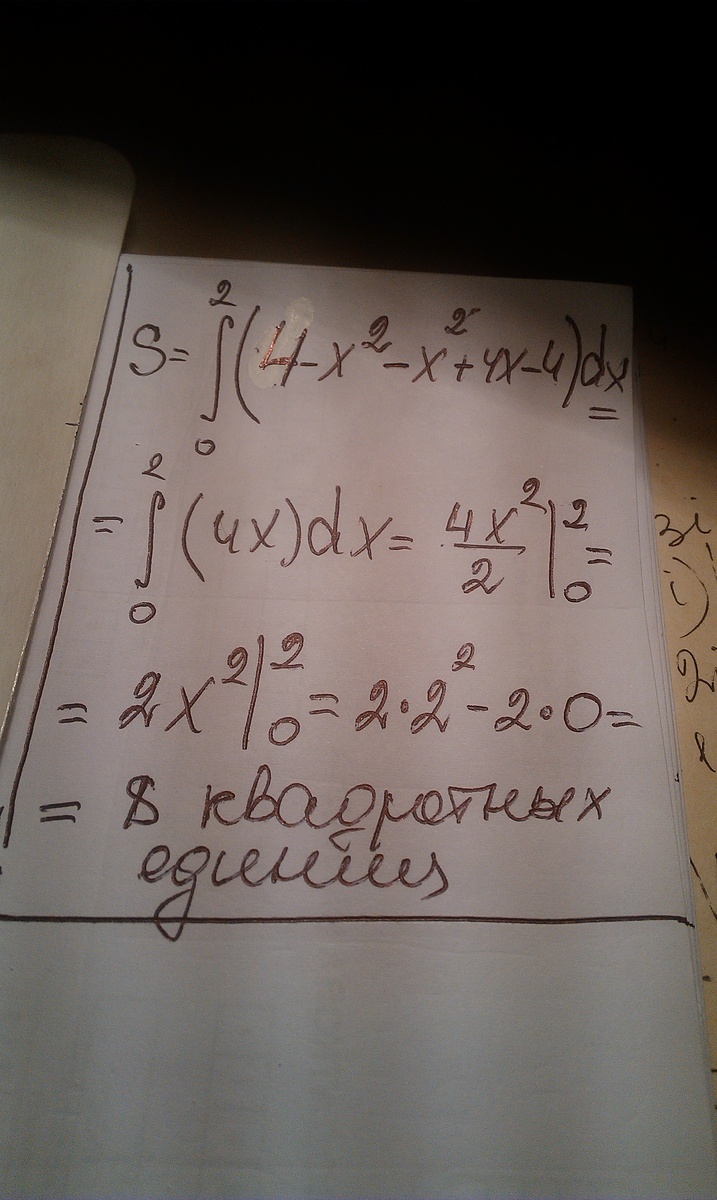 S = ∫₀² (4 - x² - x² + 4x - 4) dx =
= ∫₀² (4x) dx = 4x²/2 |₀² =
= 2x² |₀² = 2·2² - 2·0 =
= 8 квадротных
единиц
зі
2